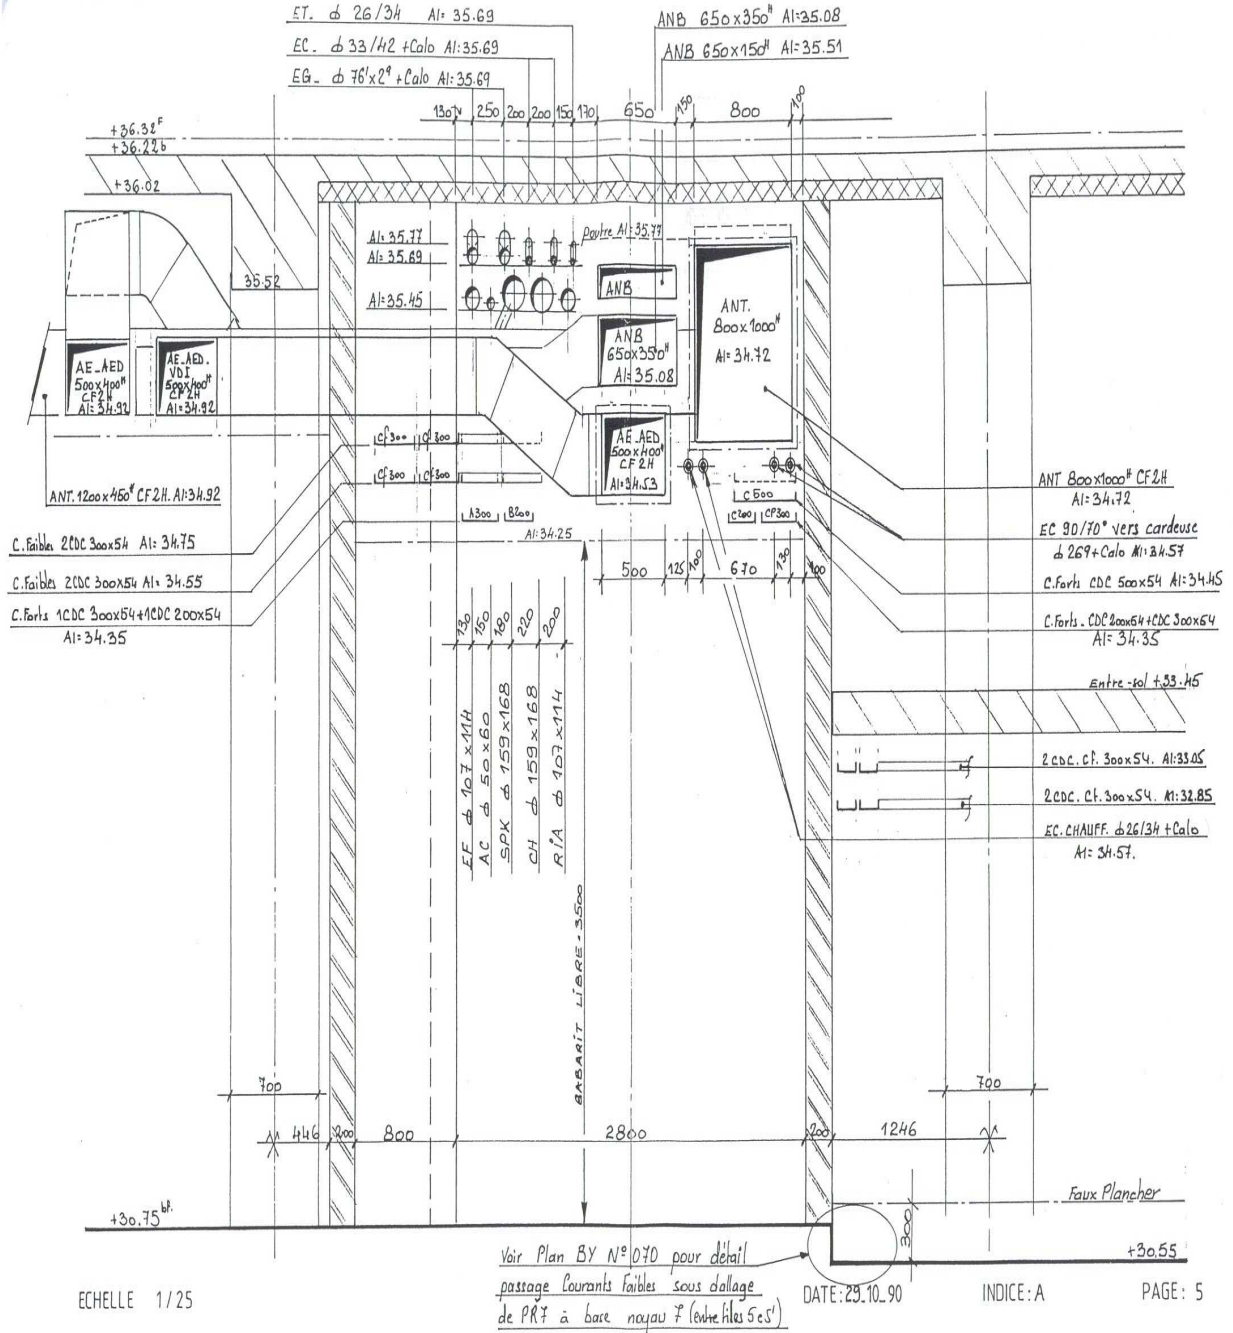 ET. ϕ 26/34 Al= 35.69
EC. ϕ 33/42 +Calo Al:35.69
EG_ ϕ 76'x2ᵍ +Calo Al:35.69
ANB 650x350ᴴ Al=35.08
ANB 650x150ᴴ Al=35.51
130 250 200 200 150 170 650 150 800 100
+36.32ᶠ
+36.22ᵇ
+36.02
35.52
Al=35.77
Al=35.69
Al=35.45
poutre Al=35.77
ANB
ANB
650x350ᴴ
Al=35.08
ANT.
800x1000ᴴ
Al=34.72
AE_AED
500x400ᴴ
CF2H
Al=34.92
AE_AED.
VDI
500x400ᴴ
CF2H
Al=34.92
AE_AED
500x400ᴴ
CF2H
Al=34.53
Cf300 Cf300
Cf300 Cf300
A300 B200
C500
C200 CP300
ANT. 1200x450ᴴ CF2H. Al:34.92
C.Faibles 2CDC 300x54 Al= 34.75
C.Faibles 2CDC 300x54 Al= 34.55
C.Forts 1CDC 300x54+1CDC 200x54
Al=34.35
Al:34.25
500 125 100 670 130 100
ANT 800x1000ᴴ CF2H
Al=34.72
EC 90/70° vers cardeuse
ϕ 269+Calo Al:34.57
C.Forts CDC 500x54 Al=34.45
C.Forts_ CDC200x54+CDC 300x54
Al=34.35
Entre-sol +33.45
2CDC. Cf. 300x54. Al:33.05
2CDC. Cf. 300x54. Al:32.85
EC.CHAUFF. ϕ26/34 +Calo
Al=34.57.
130 150 180 220 200
EF ϕ 107x114
AC ϕ 50x60
SPK ϕ 159x168
CH ϕ 159x168
RIA ϕ 107x114
GABARIT LIBRE - 3500
700
700
446 200 800 2800 200 1246
+30.75
Faux Plancher
300
+30.55
Voir Plan BY Nº 070 pour détail
passage Courants Faibles sous dallage
de PR7 à base noyau 7 (entre files 5 e 5')
ECHELLE 1/25
DATE:29_10_90
INDICE:A
PAGE: 5